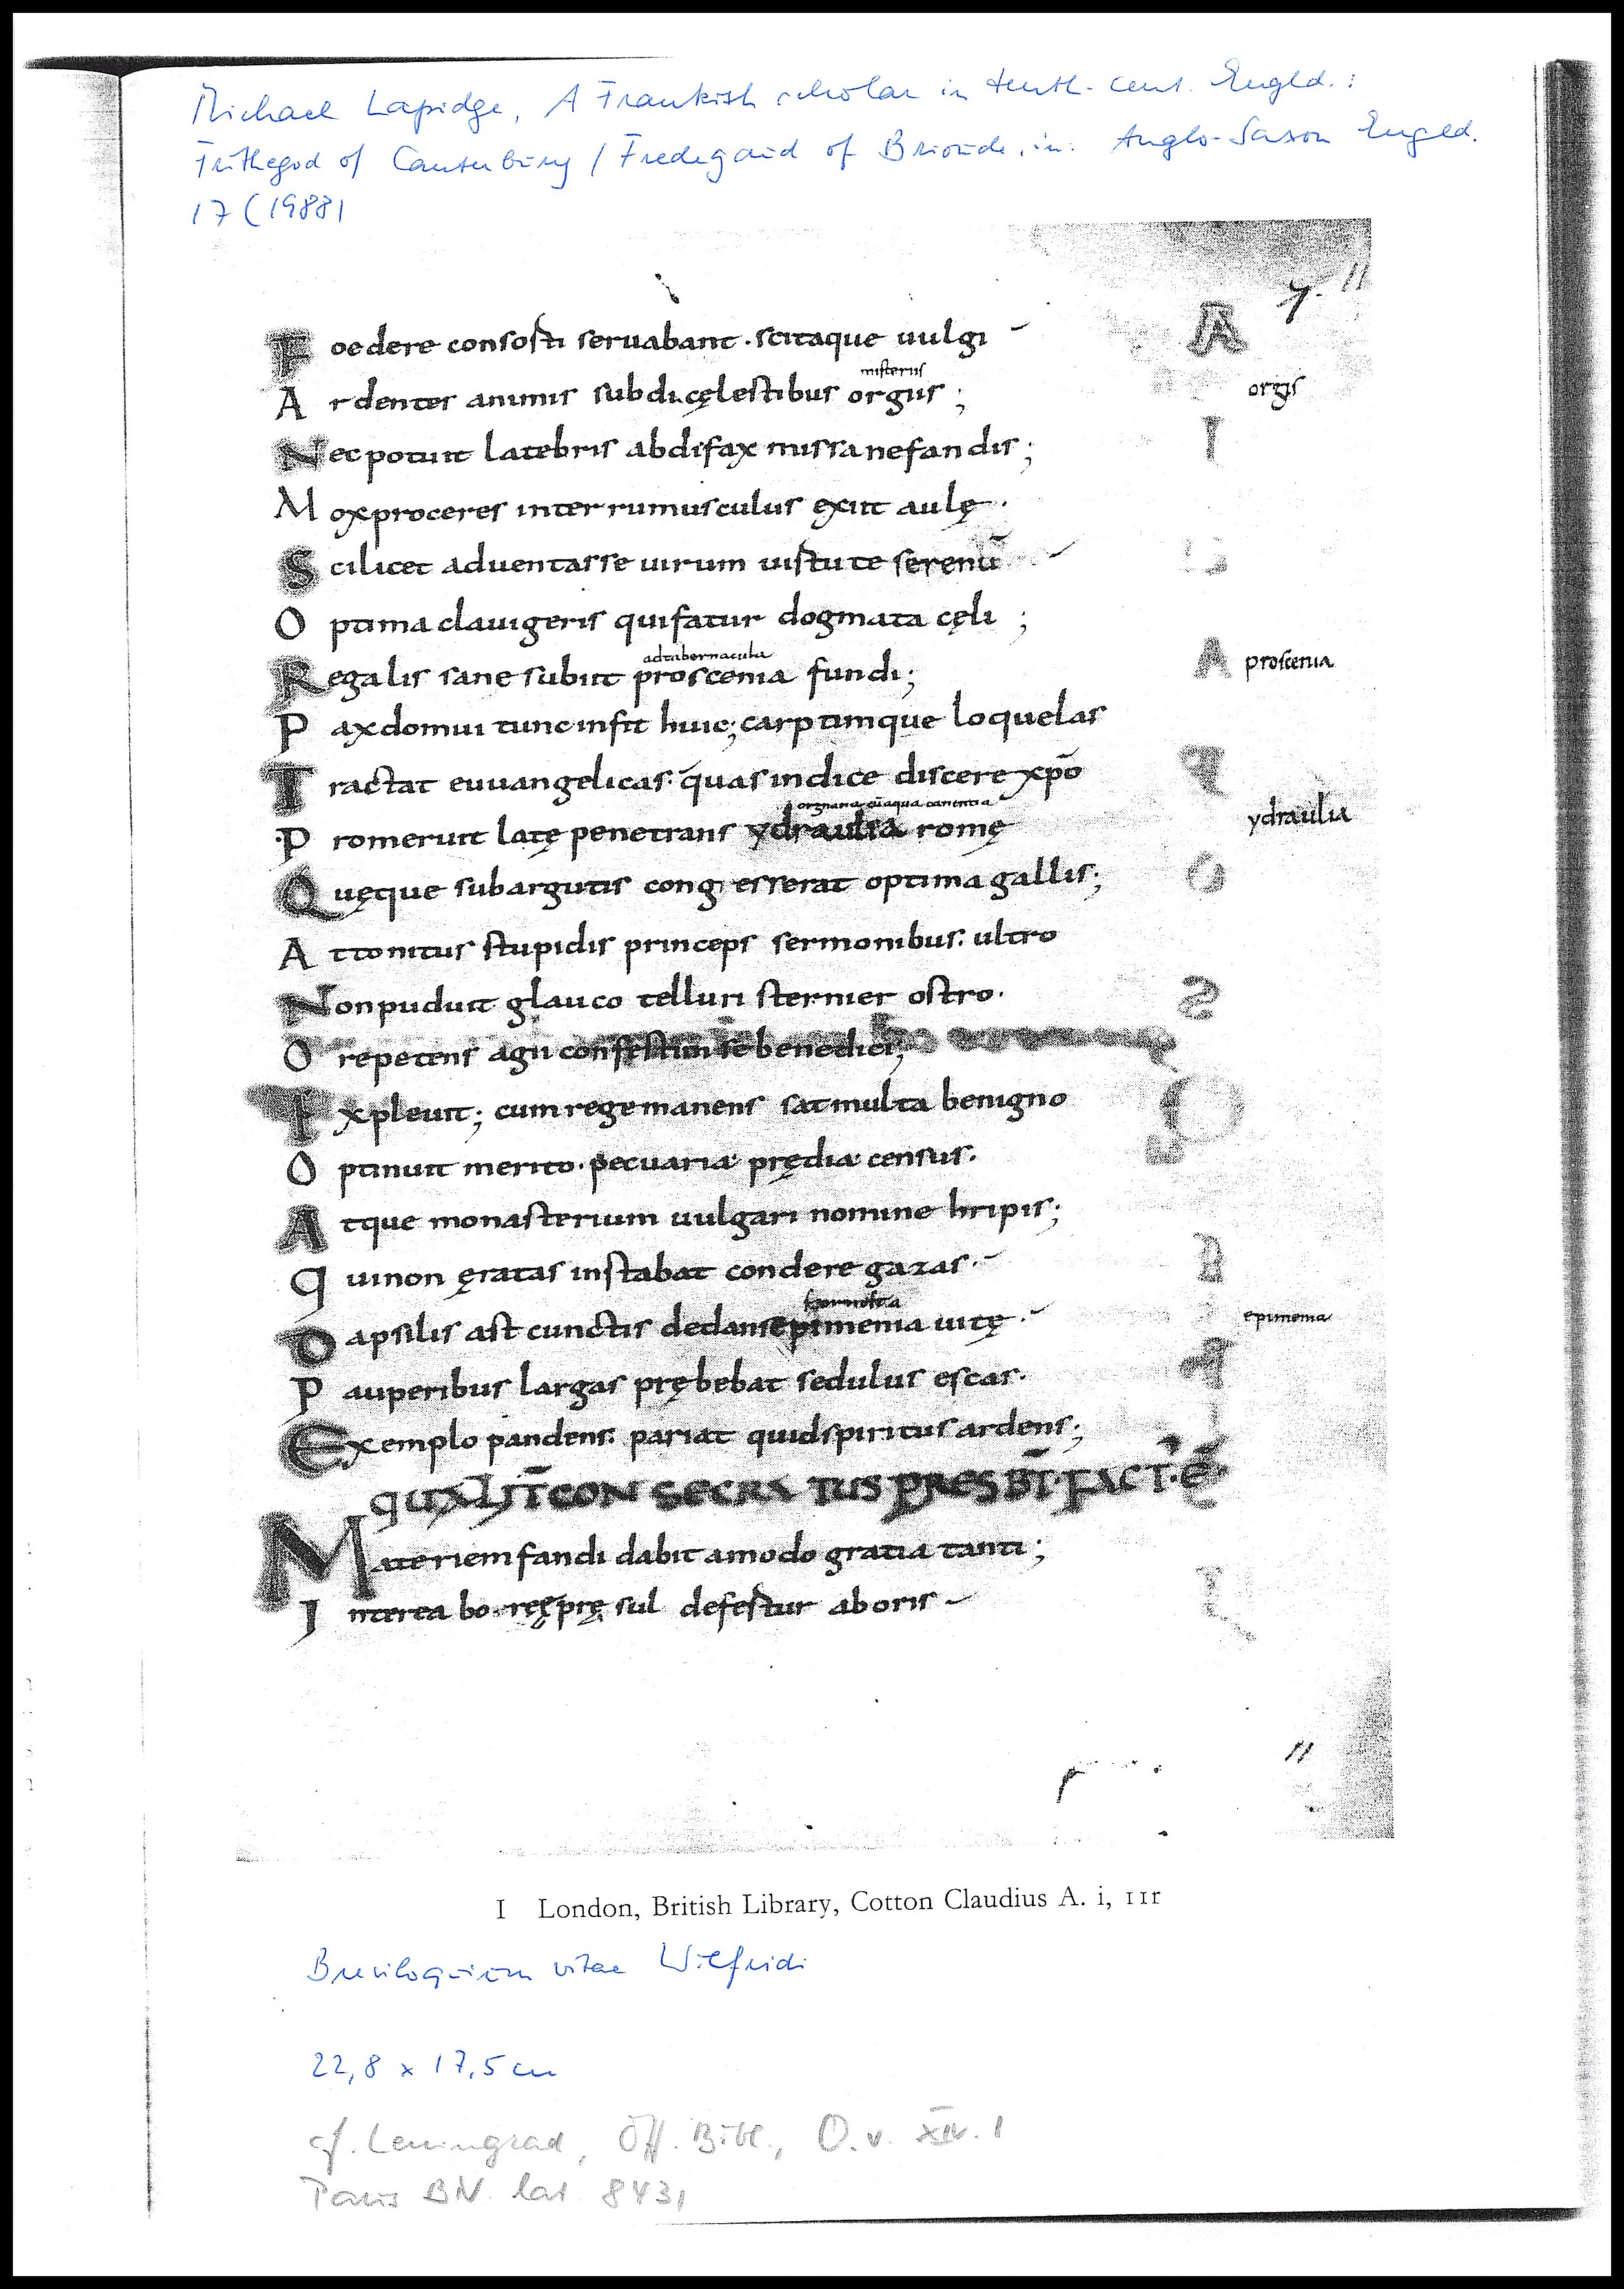 Michael Lapidge, A Frankish scholar in tenth-cent. Engld.:
Frithegod of Canterbury / Fredegaud of Brioude, in: Anglo-Saxon Engld.
17 (1988)
7. 11
Foedere consorti seruabant. scitaque uulgi
misteriis
Ardenter animis subdi cęlestibus orgiis;
orgis
Nec potuit latebris abdi fax missa nefandis;
Mox proceres inter rumusculus exiit aulę.
Scilicet aduentasse uirum uirtute serenū
Optima clauigeris qui fatur dogmata cęli;
ad tabernacula
Regalis sane subiit proscenia fundi;
proscenia
Pax domui tunc infit huic; carptimque loquelas
Tractat euuangelicas. quas indice discere xp̄o
organa cū aqua canentia
Promeruit latę penetrans ydraulia romę
ydraulia
Quęque sub argutis congesserat optima gallis;
Attonitus stupidis princeps sermonibus. ultro
Non puduit glauco telluri sternier ostro.
Ore petens agii confestim se benedici;
Expleuit; cum rege manens sat multa benigno
Optinuit merito. pecuaria prędia census.
Atque monasterium uulgari nomine hripis;
Qui non ęratas instabat condere gazas.
Dapsilis ast cunctis dedans epimenia uitę.
epimenia
Pauperibus largas prębebat sedulus escas.
Exemplo pandens. pariat quid spiritus ardens;
QUALIT̄ CONSECRATUS PRESBT̄. FACT. Ē
Materiem fandi dabit amodo gratia tanti;
Interea bo reę pręsul defertur ab oris
11
I London, British Library, Cotton Claudius A. i, 11r
Breviloquium vitae Wilfridi
22,8 x 17,5 cm
cf. Leningrad, Öff. Bibl., O. v. XIV. 1
Paris BN lat. 8431